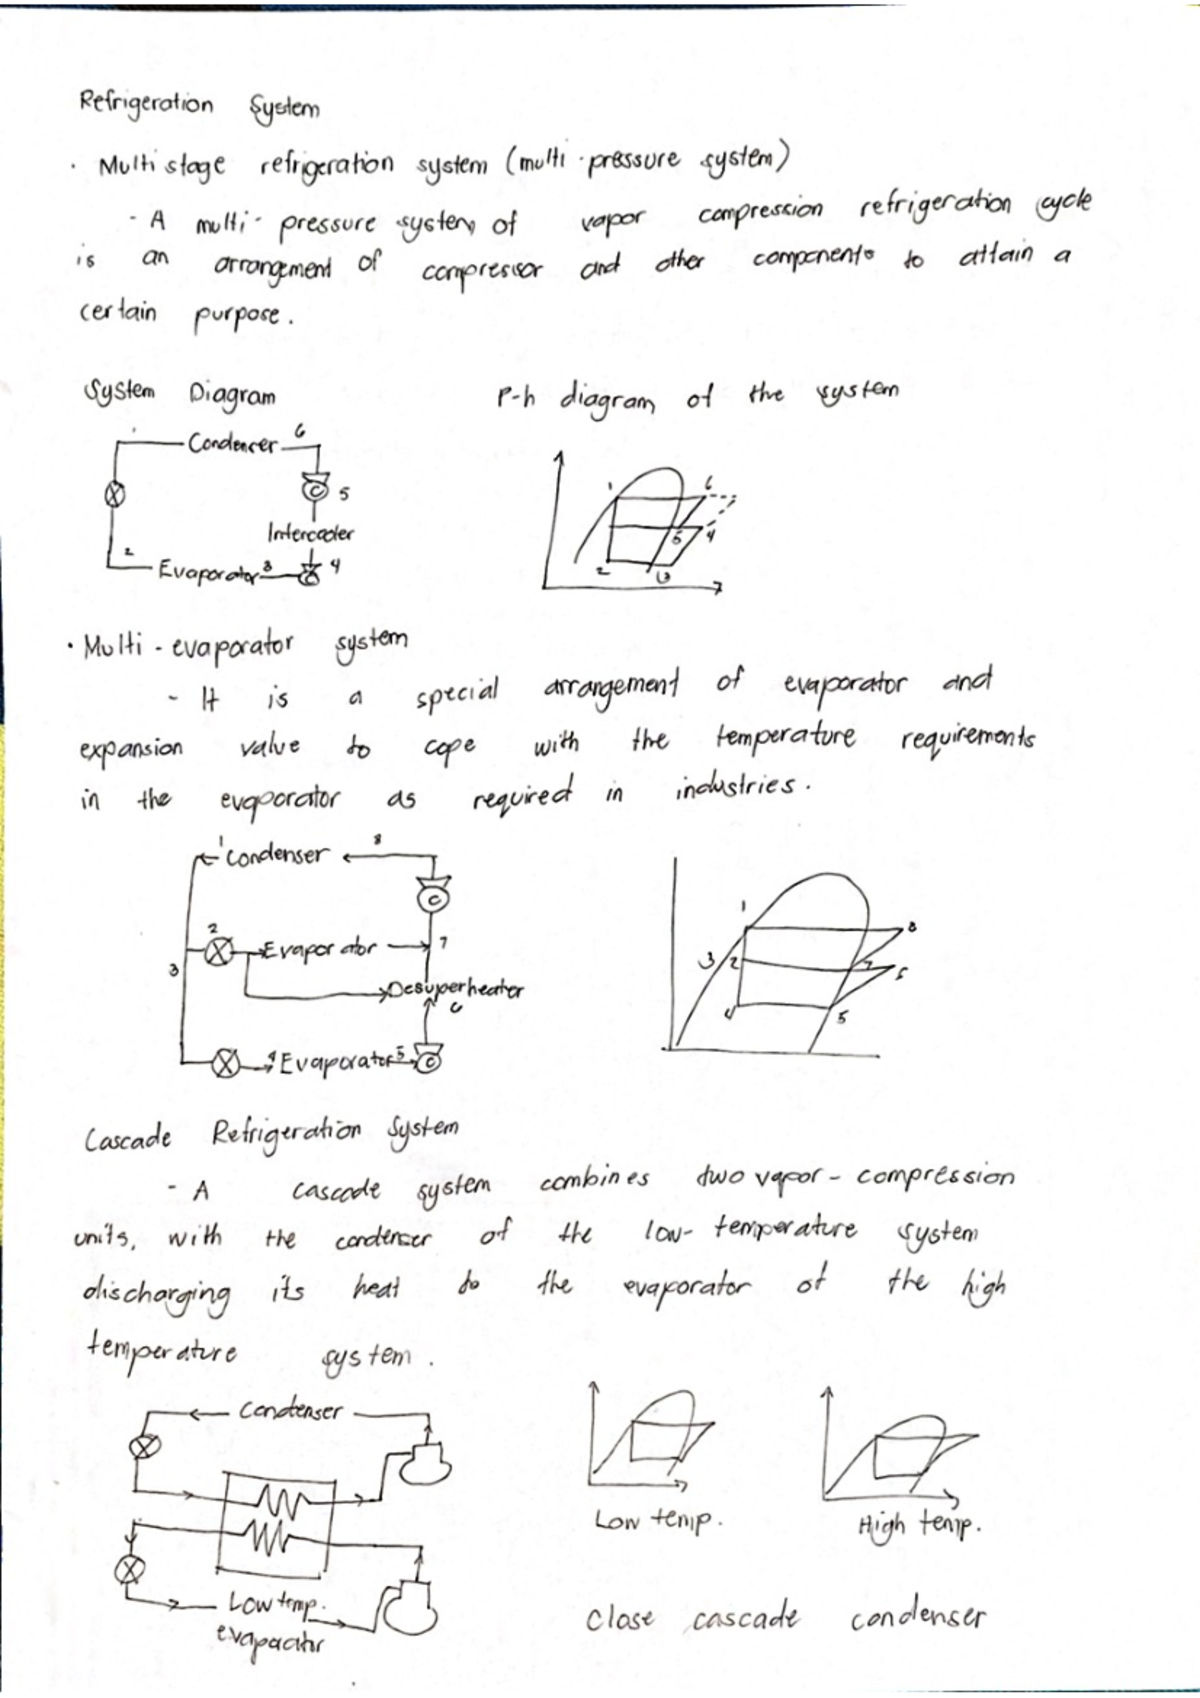 Refrigeration System
· Multi stage refrigeration system (multi-pressure system)
- A multi-pressure system of vapor compression refrigeration cycle
is an arrangement of compressor and other components to attain a
certain purpose.
System Diagram
P-h diagram of the system
1 Condenser 6
C 5
Intercooler
2 Evaporator 3 C 4
1 6
5 4
2 3
· Multi-evaporator system
- It is a special arrangement of evaporator and
expansion valve to cope with the temperature requirements
in the evaporator as required in industries.
1 Condenser 8
C
2 Evaporator 7
3
Desuperheater
6
4 Evaporator 5 C
1 8
3 2 7
4 5
Cascade Refrigeration System
- A cascade system combines two vapor-compression
units, with the condenser of the low-temperature system
discharging its heat to the evaporator of the high
temperature system.
Condenser
Low temp.
evaporator
Low temp.
High temp.
Close cascade condenser